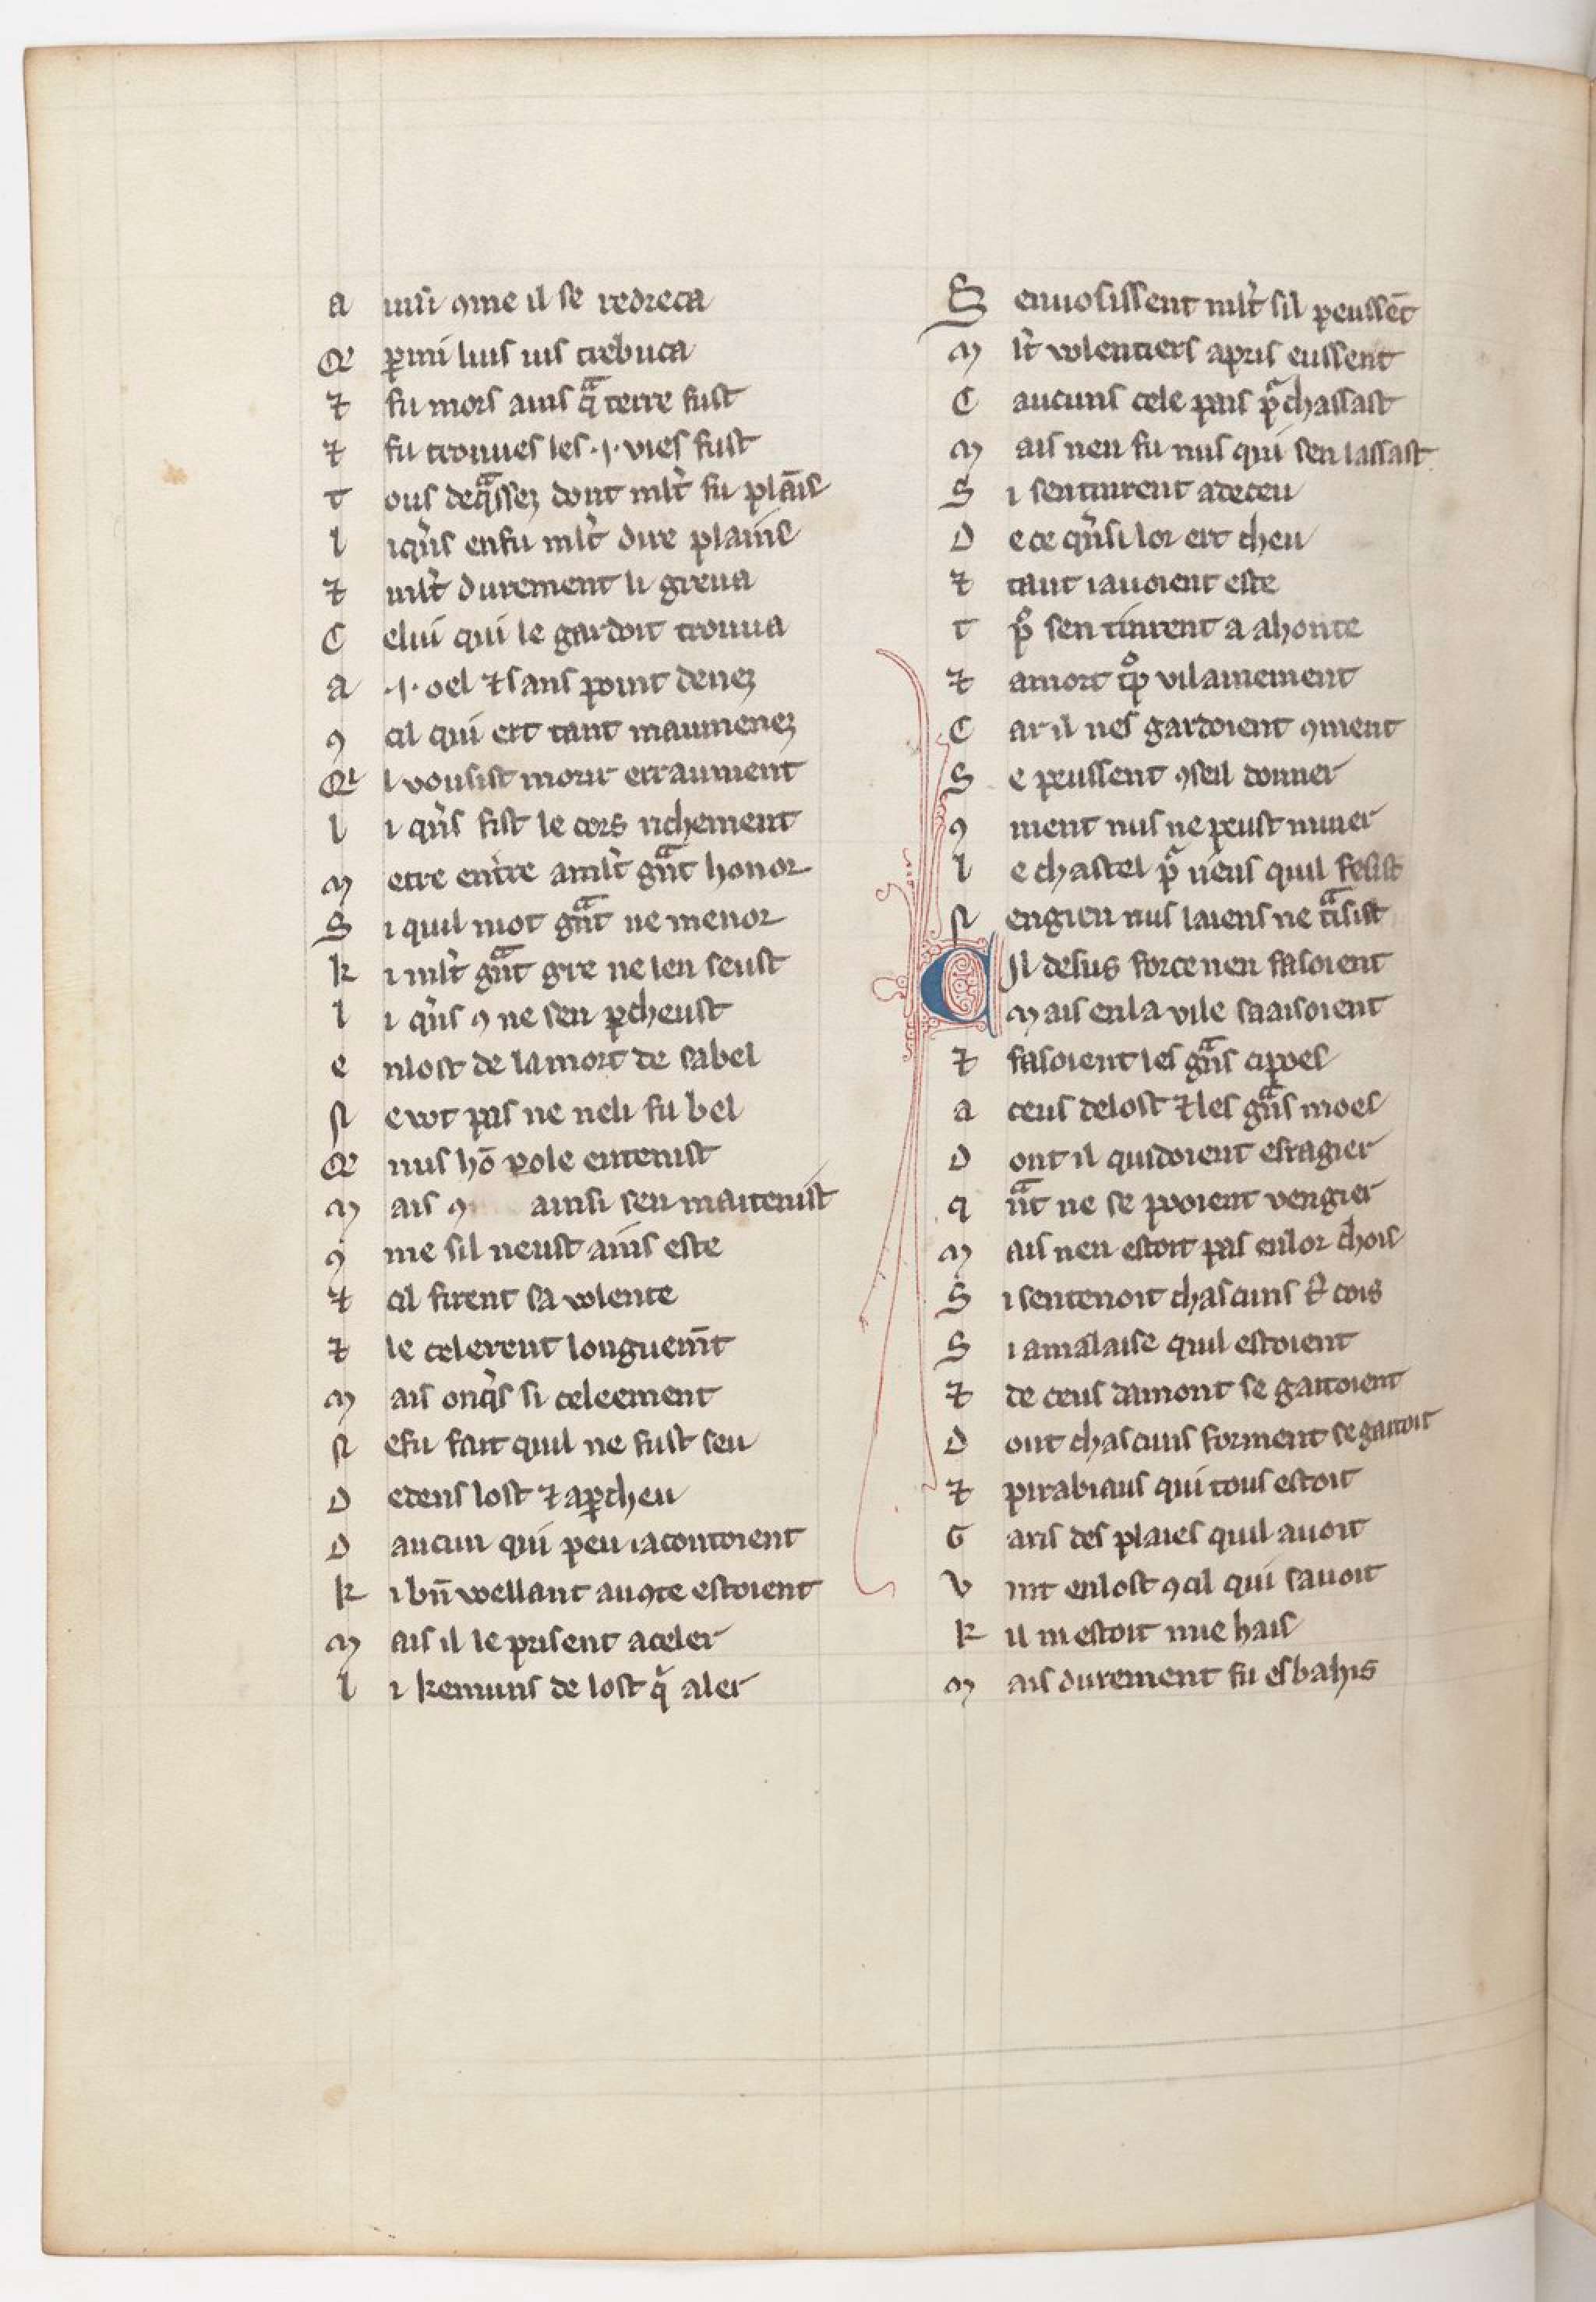 a uisi ꝯme il se redreca
Qe ꝑmi luis uis trebuca
⁊ fu mors ains qͣ terre fust
⁊ fu trouues les .j. vies fust
t ous deqͣssez dont ml̓t fu plāis
l i q̓ns enfu ml̓t dure plainte
⁊ ml̓t durement li greua
C elui qui le gardoit trouua
a .j. oel ⁊ sans point denez
ꝯ cil qui ert tant maumenez
Qi l vousist morir erraument
l i q̓ns fist le cors richement
M etre entre a ml̓t gͣnt honor
S i quil niot gͣnt ne menor
k i ml̓t gͣnt gre ne len seust
l i q̓ns ꝯ ne sen ꝑcheust
e nlost de lamort de sabel
N e vot pas ne neli fu bel
Qe nus hō ꝑole entenist
M ais ꝯ ainsi sen maitenist
ꝯ me sil neust ains este
⁊ cil firent sa volente
⁊ le celerent longuem̄t
M ais onq̓s si celeement
N efu fait quil ne fust seu
D edens lost ⁊ aꝑcheu
D aucun qui peu iacontoient
k i bn̄ voellant auꝯte estoient
M ais il le prisent aceler
l i kemuns de lost q̓ aler
S enuosissent ml̓t sil peussēt
M l̓t volentiers apris eussent
C aucuns cele pais pͣchassast
M ais nen fu nus qui sen lassast
S i sentinrent adeceu
D e ce q̓nsi lor ert cheu
⁊ tant iauoient este
t pͦ sen tinrent a ahonte
⁊ amort tpͦ vilainement
C ar il nes gardoient ꝯment
S e peussent ꝯseil donner
ꝯ ment nus ne peust miner
l e chastel pͣ riens quil fesist
N engien nus laiens ne tͣisist
C Jl desus force nen fasoient
Mais enla vile saaisoient
⁊ fasoient les gͣns cipoes
a ceus delost ⁊ les gͣns moes
D ont il quidoient esragier
q nͣt ne se pooient vengier
M ais nen estoit pas enlor chois
S i sentenoit chascuns cois
S i amalaise quil estoient
⁊ de ceus damont se gaitoient
D ont chascuns forment se gaitoit
⁊ pirabiaus qui tous estoit
G aris des plaies quil auoit
V int enlost ꝯ cil qui sauoit
k il niestoit mie hais
M ais durement fu esbahis